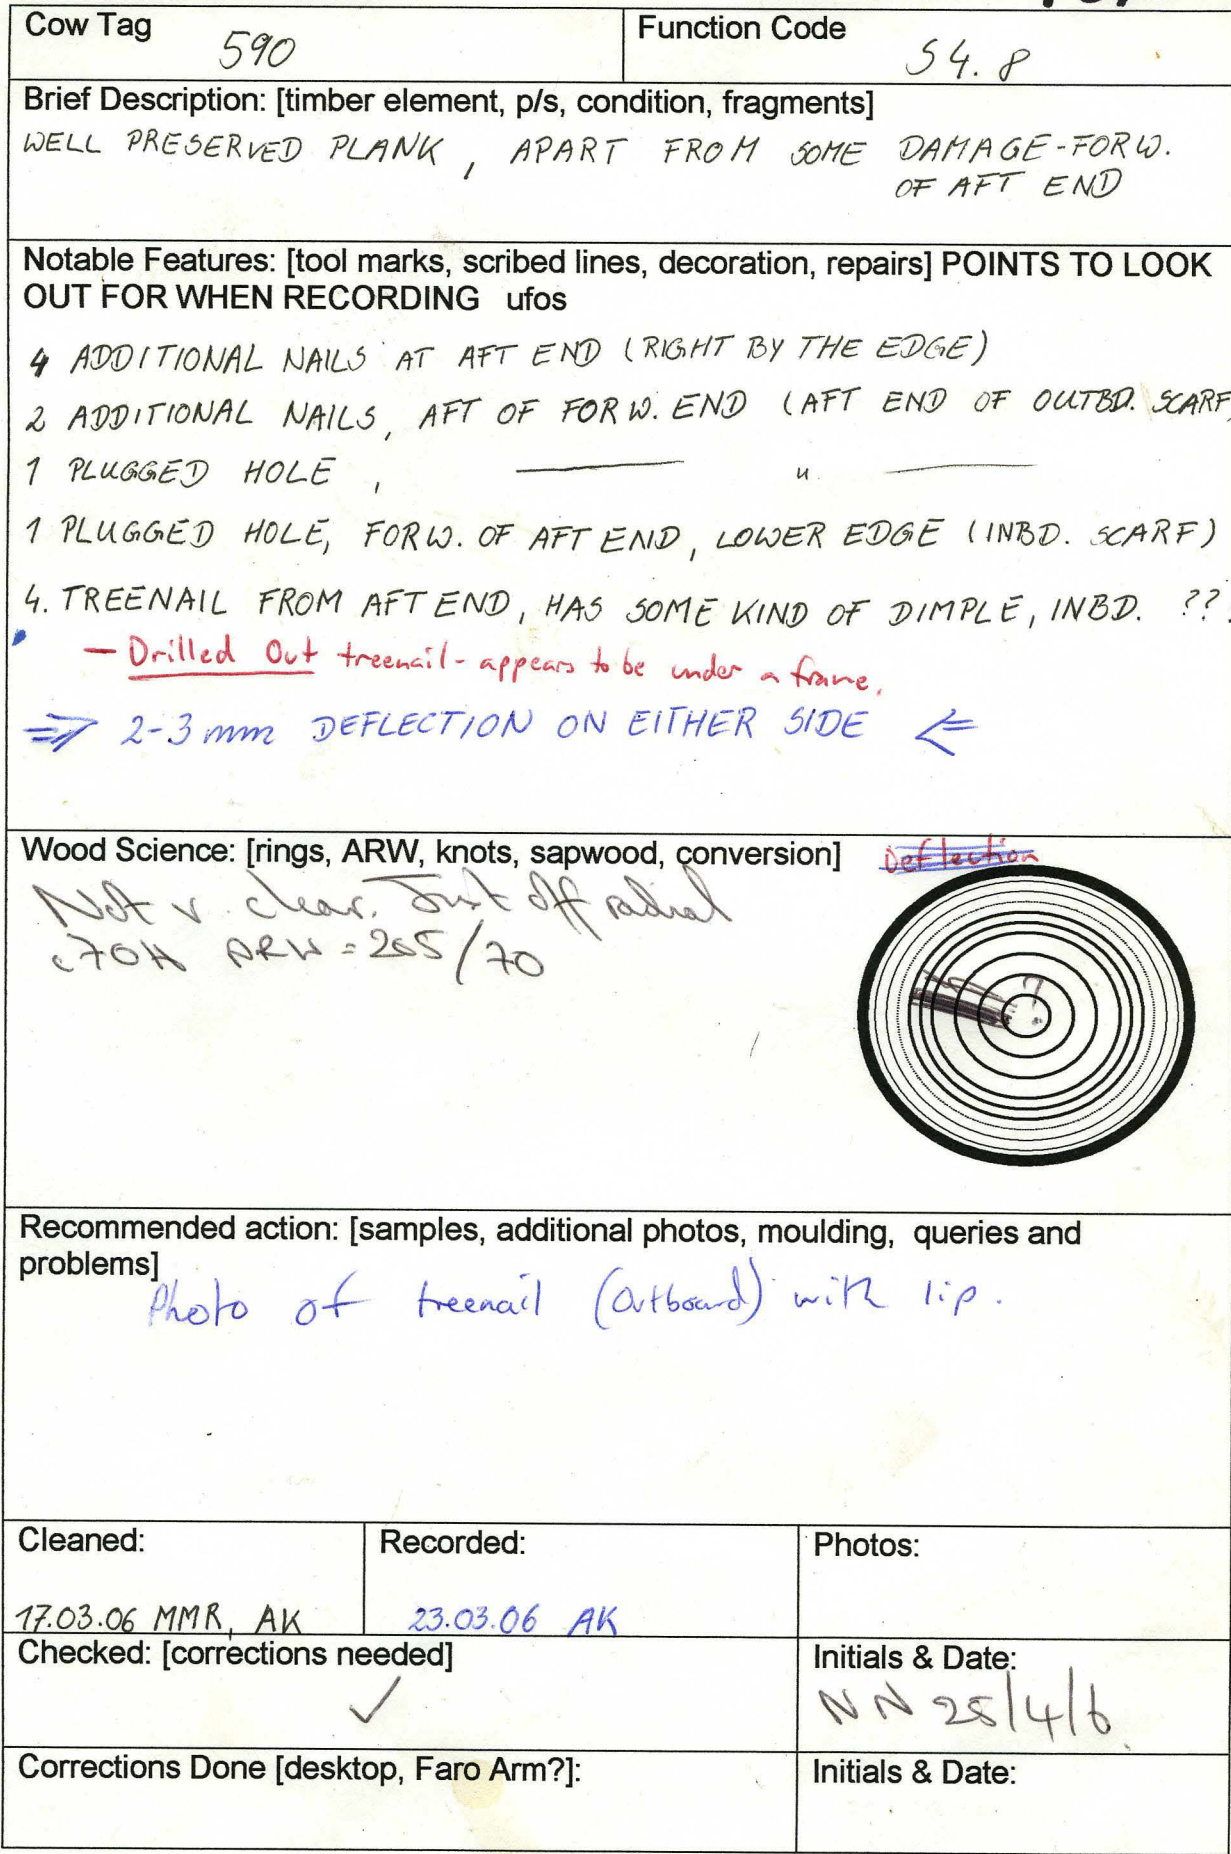 Cow Tag
590
Function Code
S4.8
Brief Description: [timber element, p/s, condition, fragments]
WELL PRESERVED PLANK, APART FROM SOME DAMAGE-FORW.
OF AFT END
Notable Features: [tool marks, scribed lines, decoration, repairs] POINTS TO LOOK
OUT FOR WHEN RECORDING ufos
4 ADDITIONAL NAILS AT AFT END (RIGHT BY THE EDGE)
2 ADDITIONAL NAILS, AFT OF FORW. END (AFT END OF OUTBD. SCARF)
1 PLUGGED HOLE, —— " ——
1 PLUGGED HOLE, FORW. OF AFT END, LOWER EDGE (INBD. SCARF)
4. TREENAIL FROM AFT END, HAS SOME KIND OF DIMPLE, INBD. ??.
— Drilled Out treenail - appears to be under a frame.
⇒ 2-3 mm DEFLECTION ON EITHER SIDE ⇐
Wood Science: [rings, ARW, knots, sapwood, conversion]
Deflection
Not v. clear. Just off radial
c70H ARW = 205/70
?
Recommended action: [samples, additional photos, moulding, queries and
problems]
Photo of treenail (Outboard) with lip.
Cleaned:
Recorded:
Photos:
17.03.06 MMR, AK
23.03.06 AK
Checked: [corrections needed]
✓
Initials & Date:
NN 25/4/6
Corrections Done [desktop, Faro Arm?]:
Initials & Date: